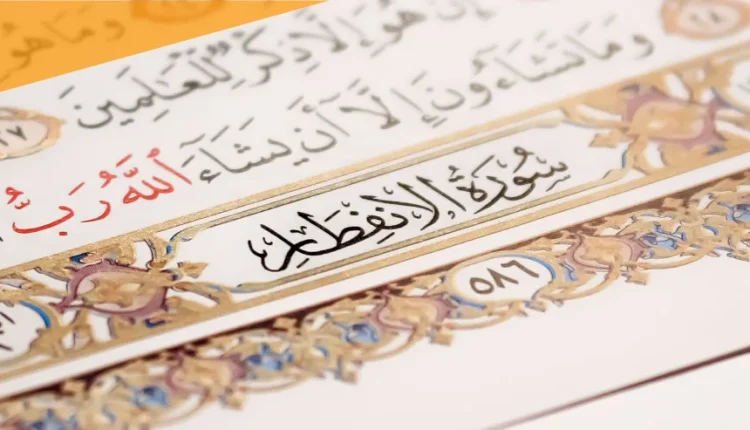 إِنْ هُوَ إِلَّا ذِكْرٌ لِّلْعَـٰلَمِينَ
٢٨
وَمَا تَشَآءُونَ إِلَّآ أَن يَشَآءَ ٱللَّهُ رَبُّ
سُورَةُ الانفِطَارِ
٥٨٦